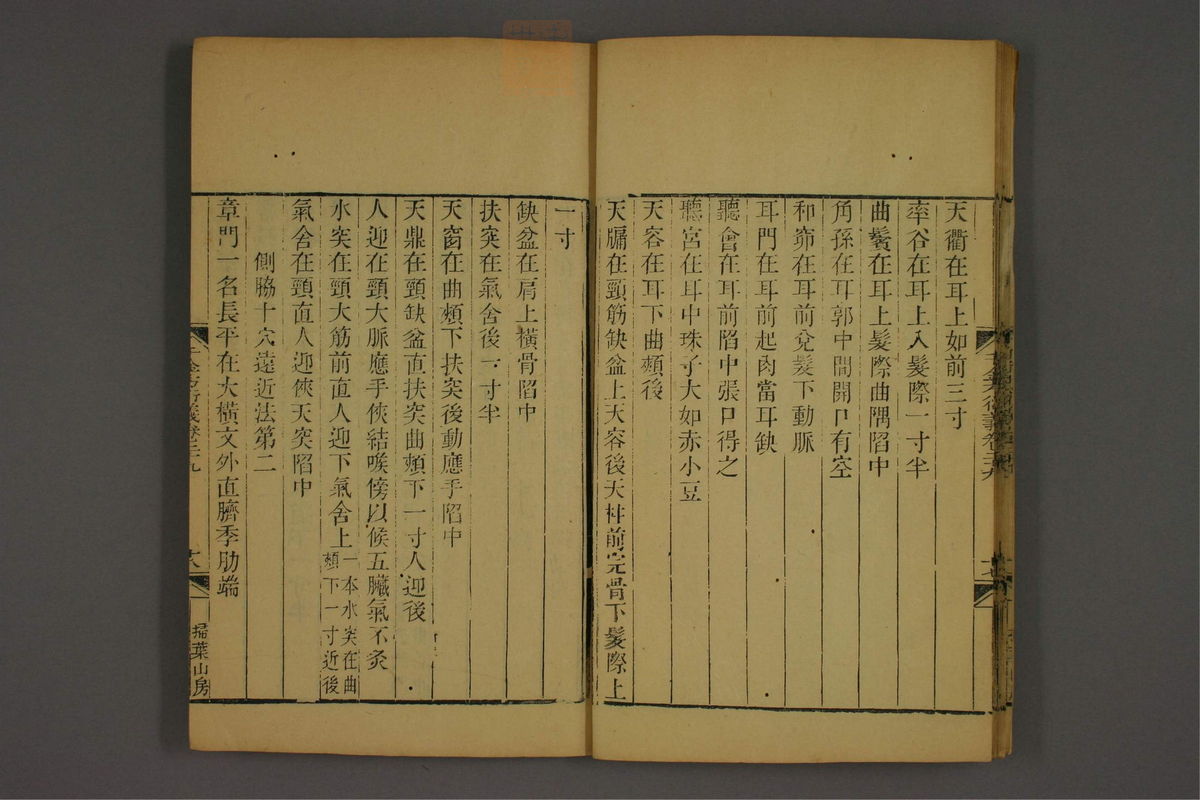 天衢在耳上如前三寸
率谷在耳上入髮際一寸半
曲鬢在耳上髮際曲隅陷中
角孫在耳郭中間開口有空
和窌在耳前兌髮下動脈
耳門在耳前起肉當耳缺
聽會在耳前陷中張口得之
聽宮在耳中珠子大如赤小豆
天容在耳下曲頰後
天牖在頸筋缺盆上天容後天柱前完骨下髮際上
一寸
缺盆在肩上橫骨陷中
扶突在氣舍後一寸半
天窗在曲頰下扶突後動應手陷中
天鼎在頸缺盆直扶突曲頰下一寸人迎後
人迎在頸大脈應手俠結喉傍以候五臟氣不灸
水突在頸大筋前直人迎下氣舍上一本水突在曲頰下一寸近後
氣舍在頸直人迎俠天突陷中
側脇十穴遠近法第二
章門一名長平在大橫文外直臍季肋端
掃葉山房